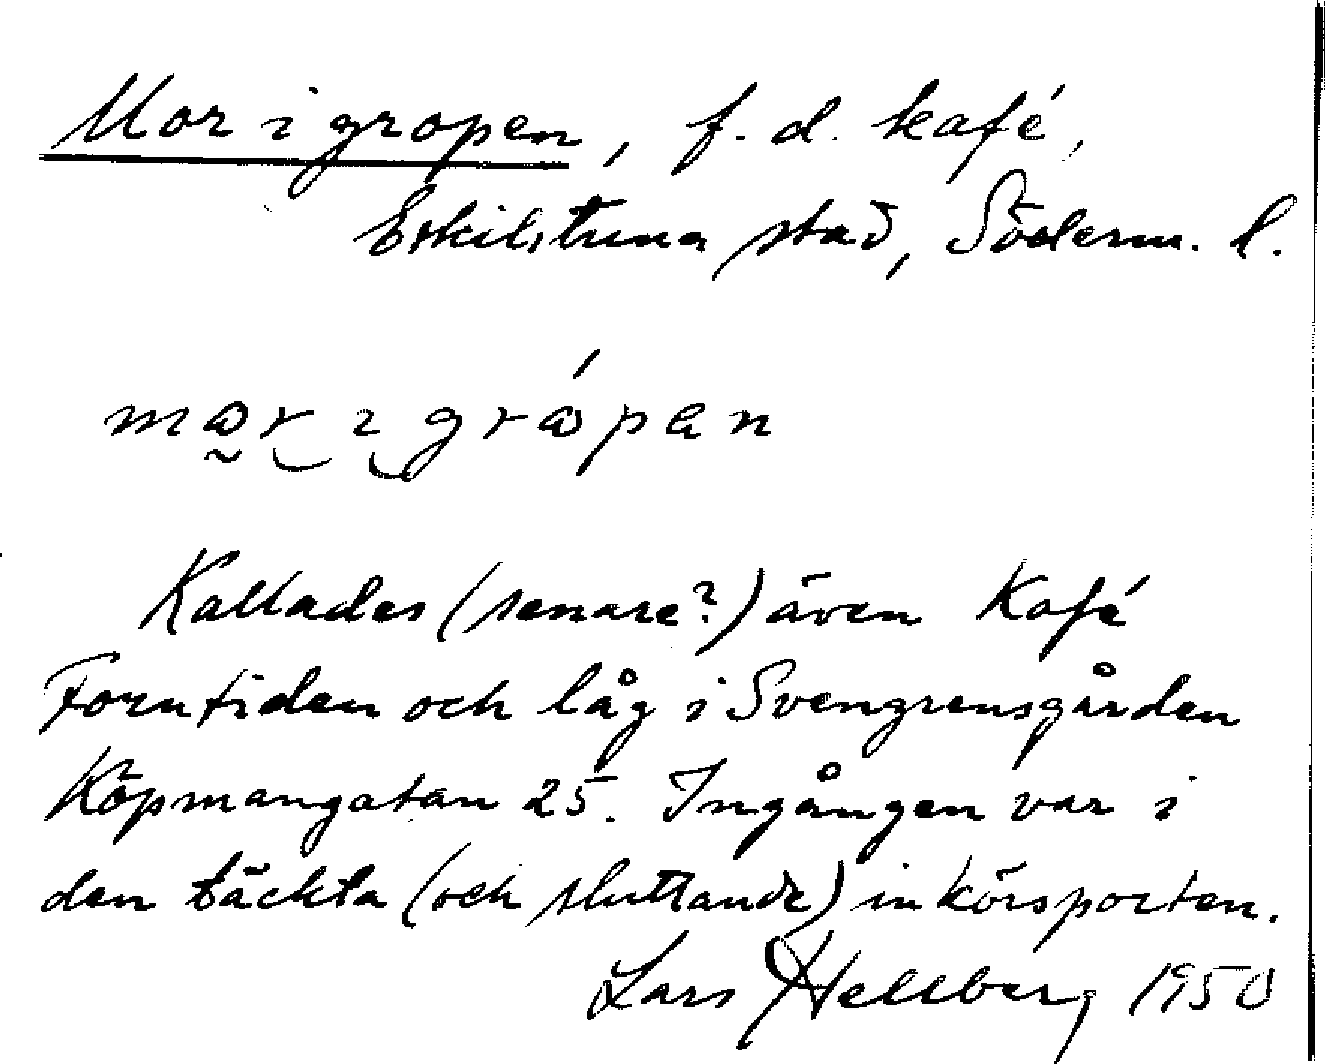 Mor i gropen, f. d. kafé,
Eskilstuna stad, Söderm. l.
mor i grópen
Kallades (senare?) även Kafé
Forntiden och låg i Svengrensgården
Köpmangatan 25. Ingången var i
den täckta (och sluttande) inkörsporten.
Lars Hellberg 1950